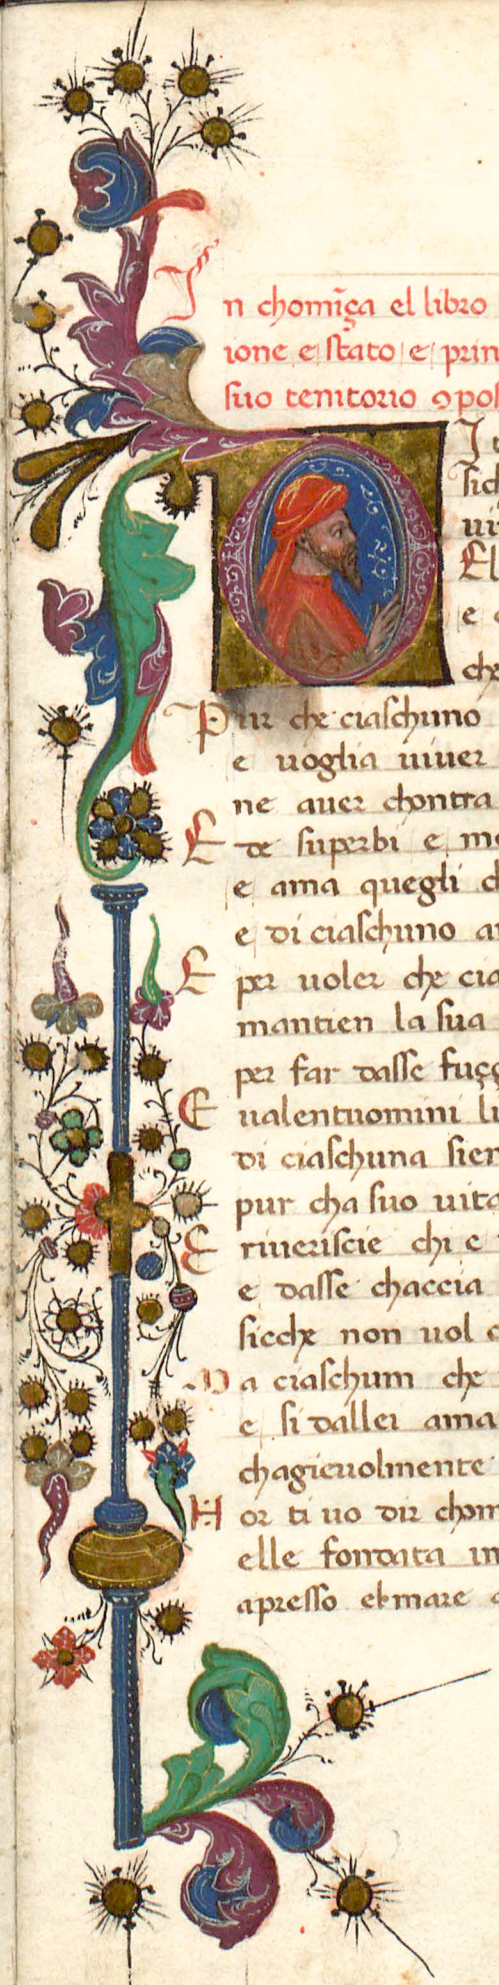 In chomīça el libro
ione e stato e prin
suo tenitorio ꝯpos
I
sic
ui
El
e
che
Pur che ciaschuno
e uoglia uiuer
ne auer chontra
E de superbi e mo
e ama quegli ch
e di ciaschuno a
E per uoler che cia
mantien la sua
per far dasse fugg
E ualentuomini li
di ciaschuna sien
pur cha suo uita
E riueriscie chi e
e dasse chaccia
sicche non uol
Ma ciaschum che
e si dallei ama
chagieuolmente
Hor ti uo dir chom
elle fondata in
apresso el mare